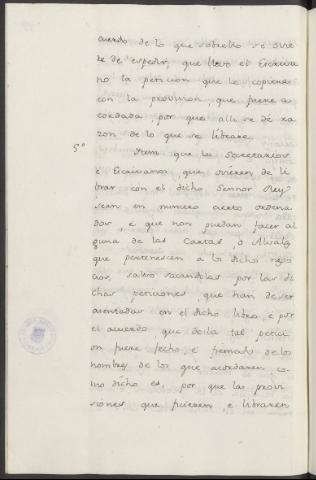 cuerdo de lo que sobrello se ovie
re de espedir, que lleve el Escriva
no la peticion que le copiere
con la provision, que fuere a
cordada, por que alli se dé ra
zon de lo que se librare.
5º Item que los Secretarios
é Escrivanos, que ovieren de li
brar con el dicho Sennor Rey
sean en numero cierto ordena
dos, é que non puedan facer al
guna de las Cartas, o Alvalas
que pertenescen á lo dicho nego
cios, salvo sacandolas por las di
chas peticiones, que han de ser
asentadas en el dicho libro, é por
el acuerdo, que de ila tal petici
on fuere fecho, é firmado de los
nombres de los que acordaren co
mo dicho es, por que las provi
siones que ficieren, é libraren